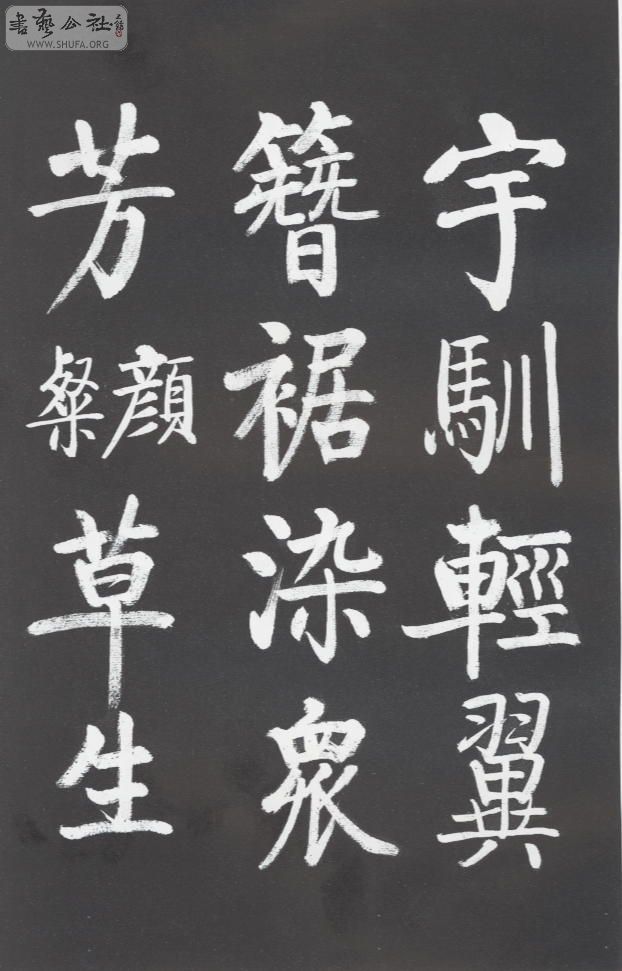 書藝公社
WWW.SHUFA.ORG
宇馴輕翼
簪裾染衆
芳顔粲草生